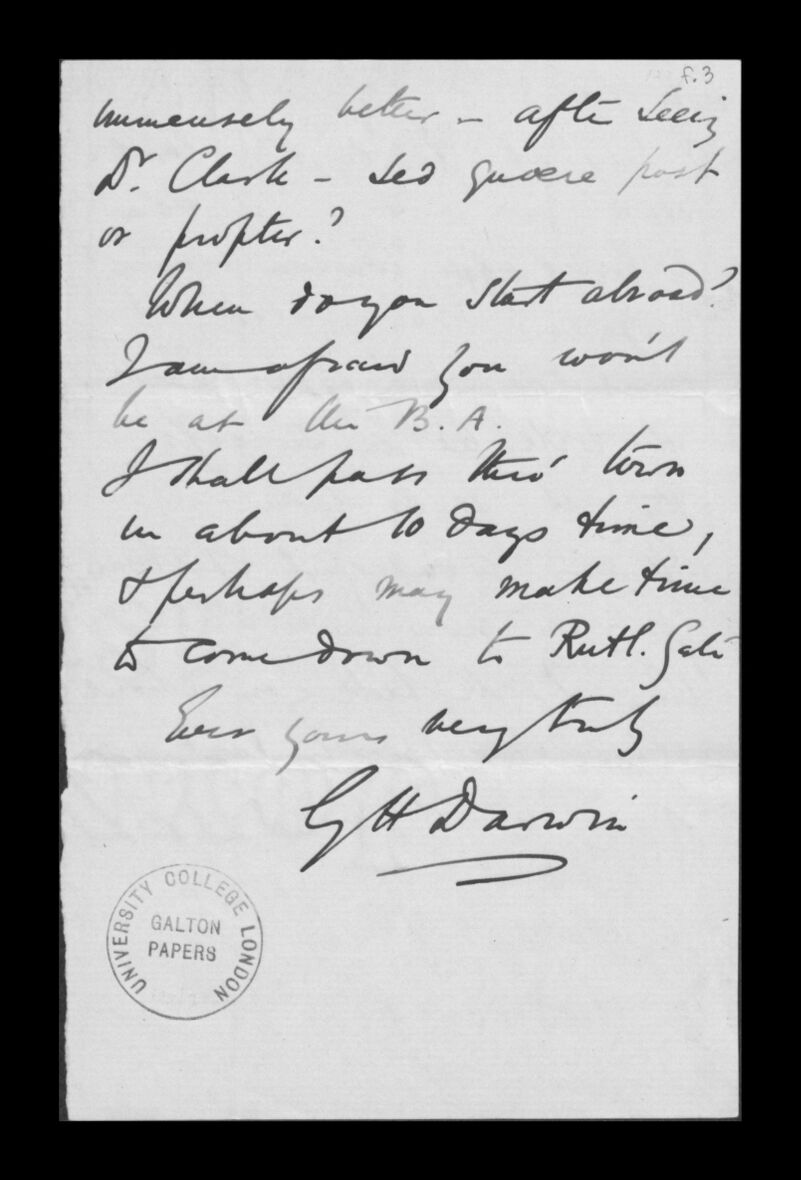 f.3
immensely better – after seeing
Dr. Clark – sed quaere post
or propter?
When do you start abroad?
I am afraid you won't
be at the B.A.
I shall pass thro' town
in about 10 days time,
& perhaps may make time
to come down to Rutl. Gate
Ever yours very truly
G H Darwin
UNIVERSITY COLLEGE LONDON
GALTON
PAPERS